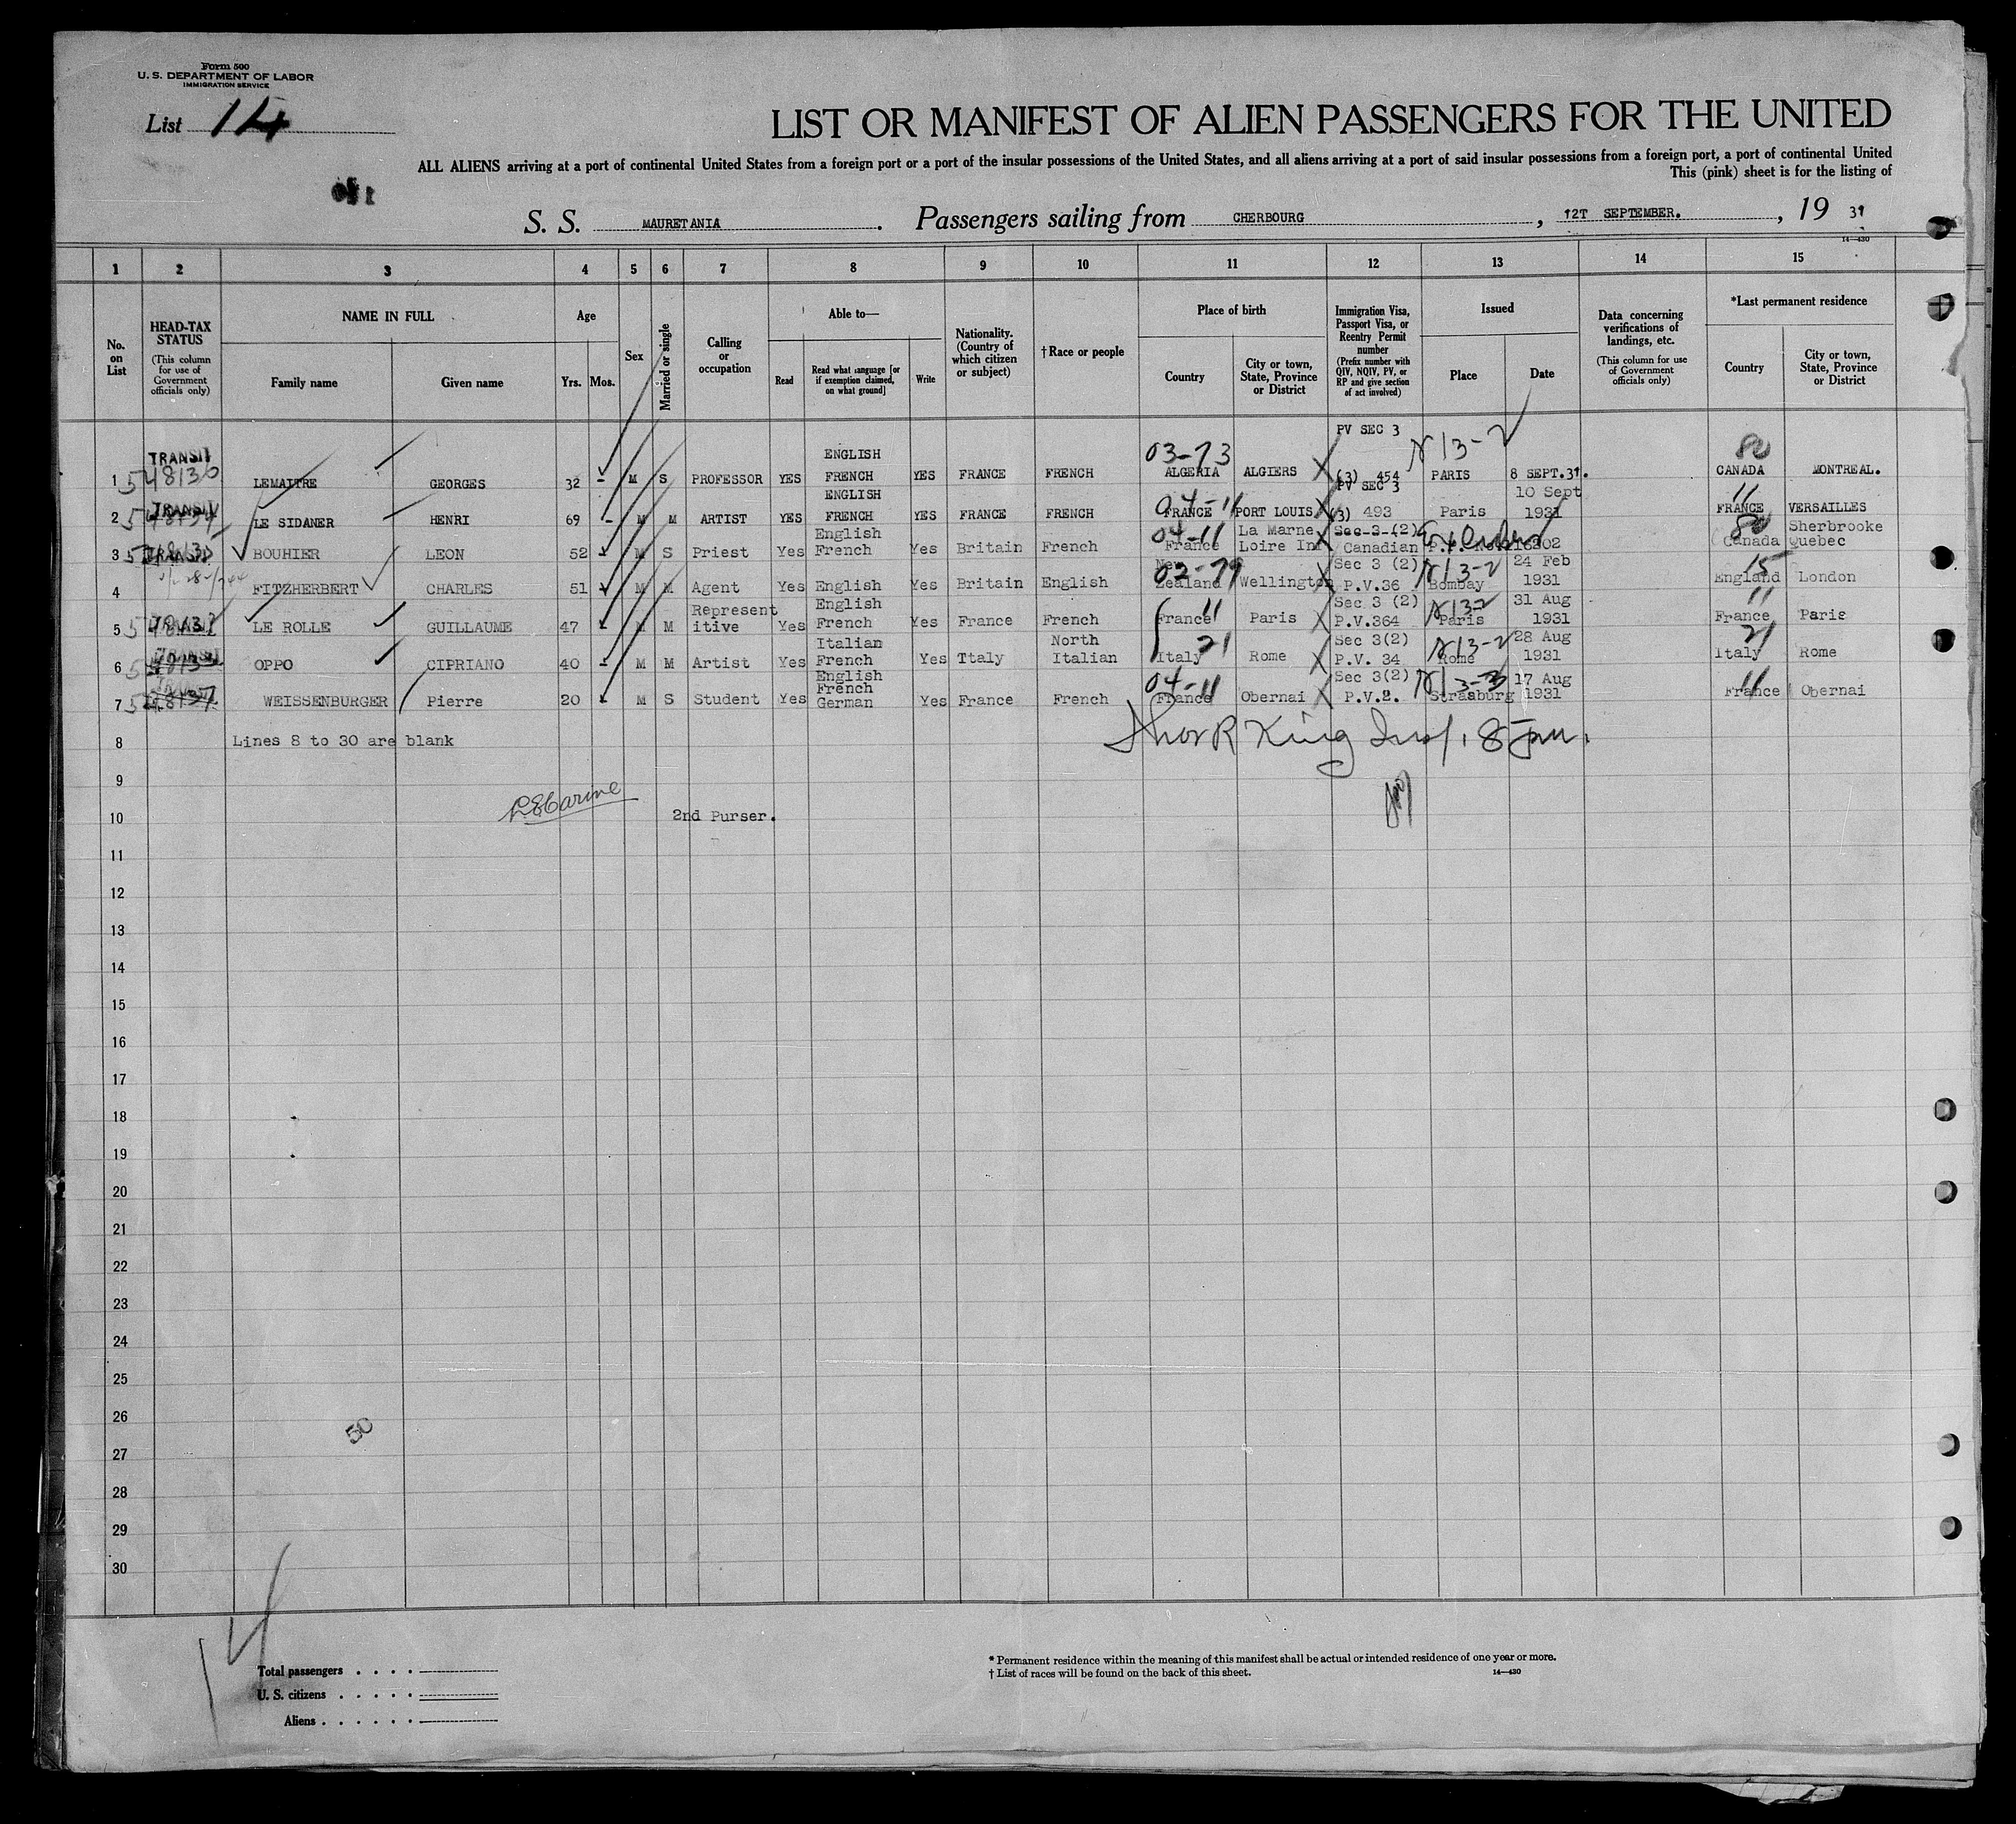 Form 500
U. S. DEPARTMENT OF LABOR
IMMIGRATION SERVICE
List 14
LIST OR MANIFEST OF ALIEN PASSENGERS FOR THE UNITED
ALL ALIENS arriving at a port of continental United States from a foreign port or a port of the insular possessions of the United States, and all aliens arriving at a port of said insular possessions from a foreign port, a port of continental United
This (pink) sheet is for the listing of
S. S. MAURETANIA. Passengers sailing from CHERBOURG, 12T SEPTEMBER., 19 31
14—430
1 2 3 4 5 6 7 8 9 10 11 12 13 14 15
No. on List
HEAD-TAX STATUS
(This column for use of Government officials only)
NAME IN FULL
Family name Given name
Age
Yrs. Mos.
Sex
Married or single
Calling or occupation
Able to—
Read
Read what language [or if exemption claimed, on what ground]
Write
Nationality. (Country of which citizen or subject)
†Race or people
Place of birth
Country
City or town, State, Province or District
Immigration Visa, Passport Visa, or Reentry Permit number
(Prefix number with QIV, NQIV, PV, or RP and give section of act involved)
Issued
Place Date
Data concerning verifications of landings, etc.
(This column for use of Government officials only)
*Last permanent residence
Country
City or town, State, Province or District
1 TRANSIT 548130 LEMAITRE GEORGES 32 - M S PROFESSOR YES ENGLISH FRENCH YES FRANCE FRENCH 03-73 ALGERIA ALGIERS PV SEC 3 (3) 454 PARIS 8 SEPT.31. 80 CANADA MONTREAL.
2 TRANSIT LE SIDANER HENRI 69 - M M ARTIST YES ENGLISH FRENCH YES FRANCE FRENCH 04-11 FRANCE PORT LOUIS PV SEC 3 (3) 493 Paris 10 Sept 1931 11 FRANCE VERSAILLES
3 TRANSIT BOUHIER LEON 52 M S Priest Yes English French Yes Britain French 04-11 France La Marne Loire Inf Sec-3-(2) Canadian 80 Canada Sherbrooke Quebec
4 FITZHERBERT CHARLES 51 M M Agent Yes English Yes Britain English 02-79 New Zealand Wellington Sec 3 (2) P.V.36 Bombay 24 Feb 1931 15 England London
5 LE ROLLE GUILLAUME 47 M M Representitive Yes English French Yes France French 11 France Paris Sec 3 (2) P.V.364 Paris 31 Aug 1931 11 France Paris
6 TRANSIT OPPO CIPRIANO 40 M M Artist Yes Italian French Yes Ttaly North Italian 21 Italy Rome Sec 3(2) P.V. 34 Rome 28 Aug 1931 21 Italy Rome
7 WEISSENBURGER Pierre 20 M S Student Yes English French German Yes France French 04-11 France Obernai Sec 3(2) P.V.2. Strasburg 17 Aug 1931 11 France Obernai
8 Lines 8 to 30 are blank
9
10 2nd Purser.
11
12
13
14
15
16
17
18
19
20
21
22
23
24
25
26
50
27
28
29
30
14
Total passengers
U. S. citizens
Aliens
* Permanent residence within the meaning of this manifest shall be actual or intended residence of one year or more.
† List of races will be found on the back of this sheet. 14—430